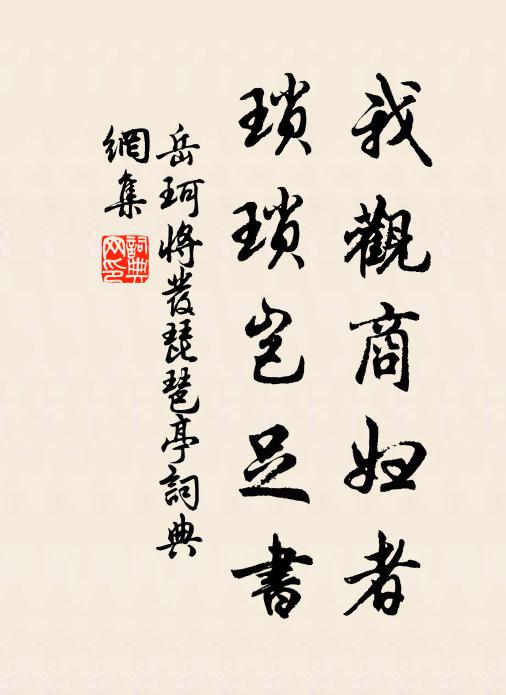 我觀商婦者
瑣瑣豈足書
岳珂將發琵琶亭詞典
網集
詞典
网印